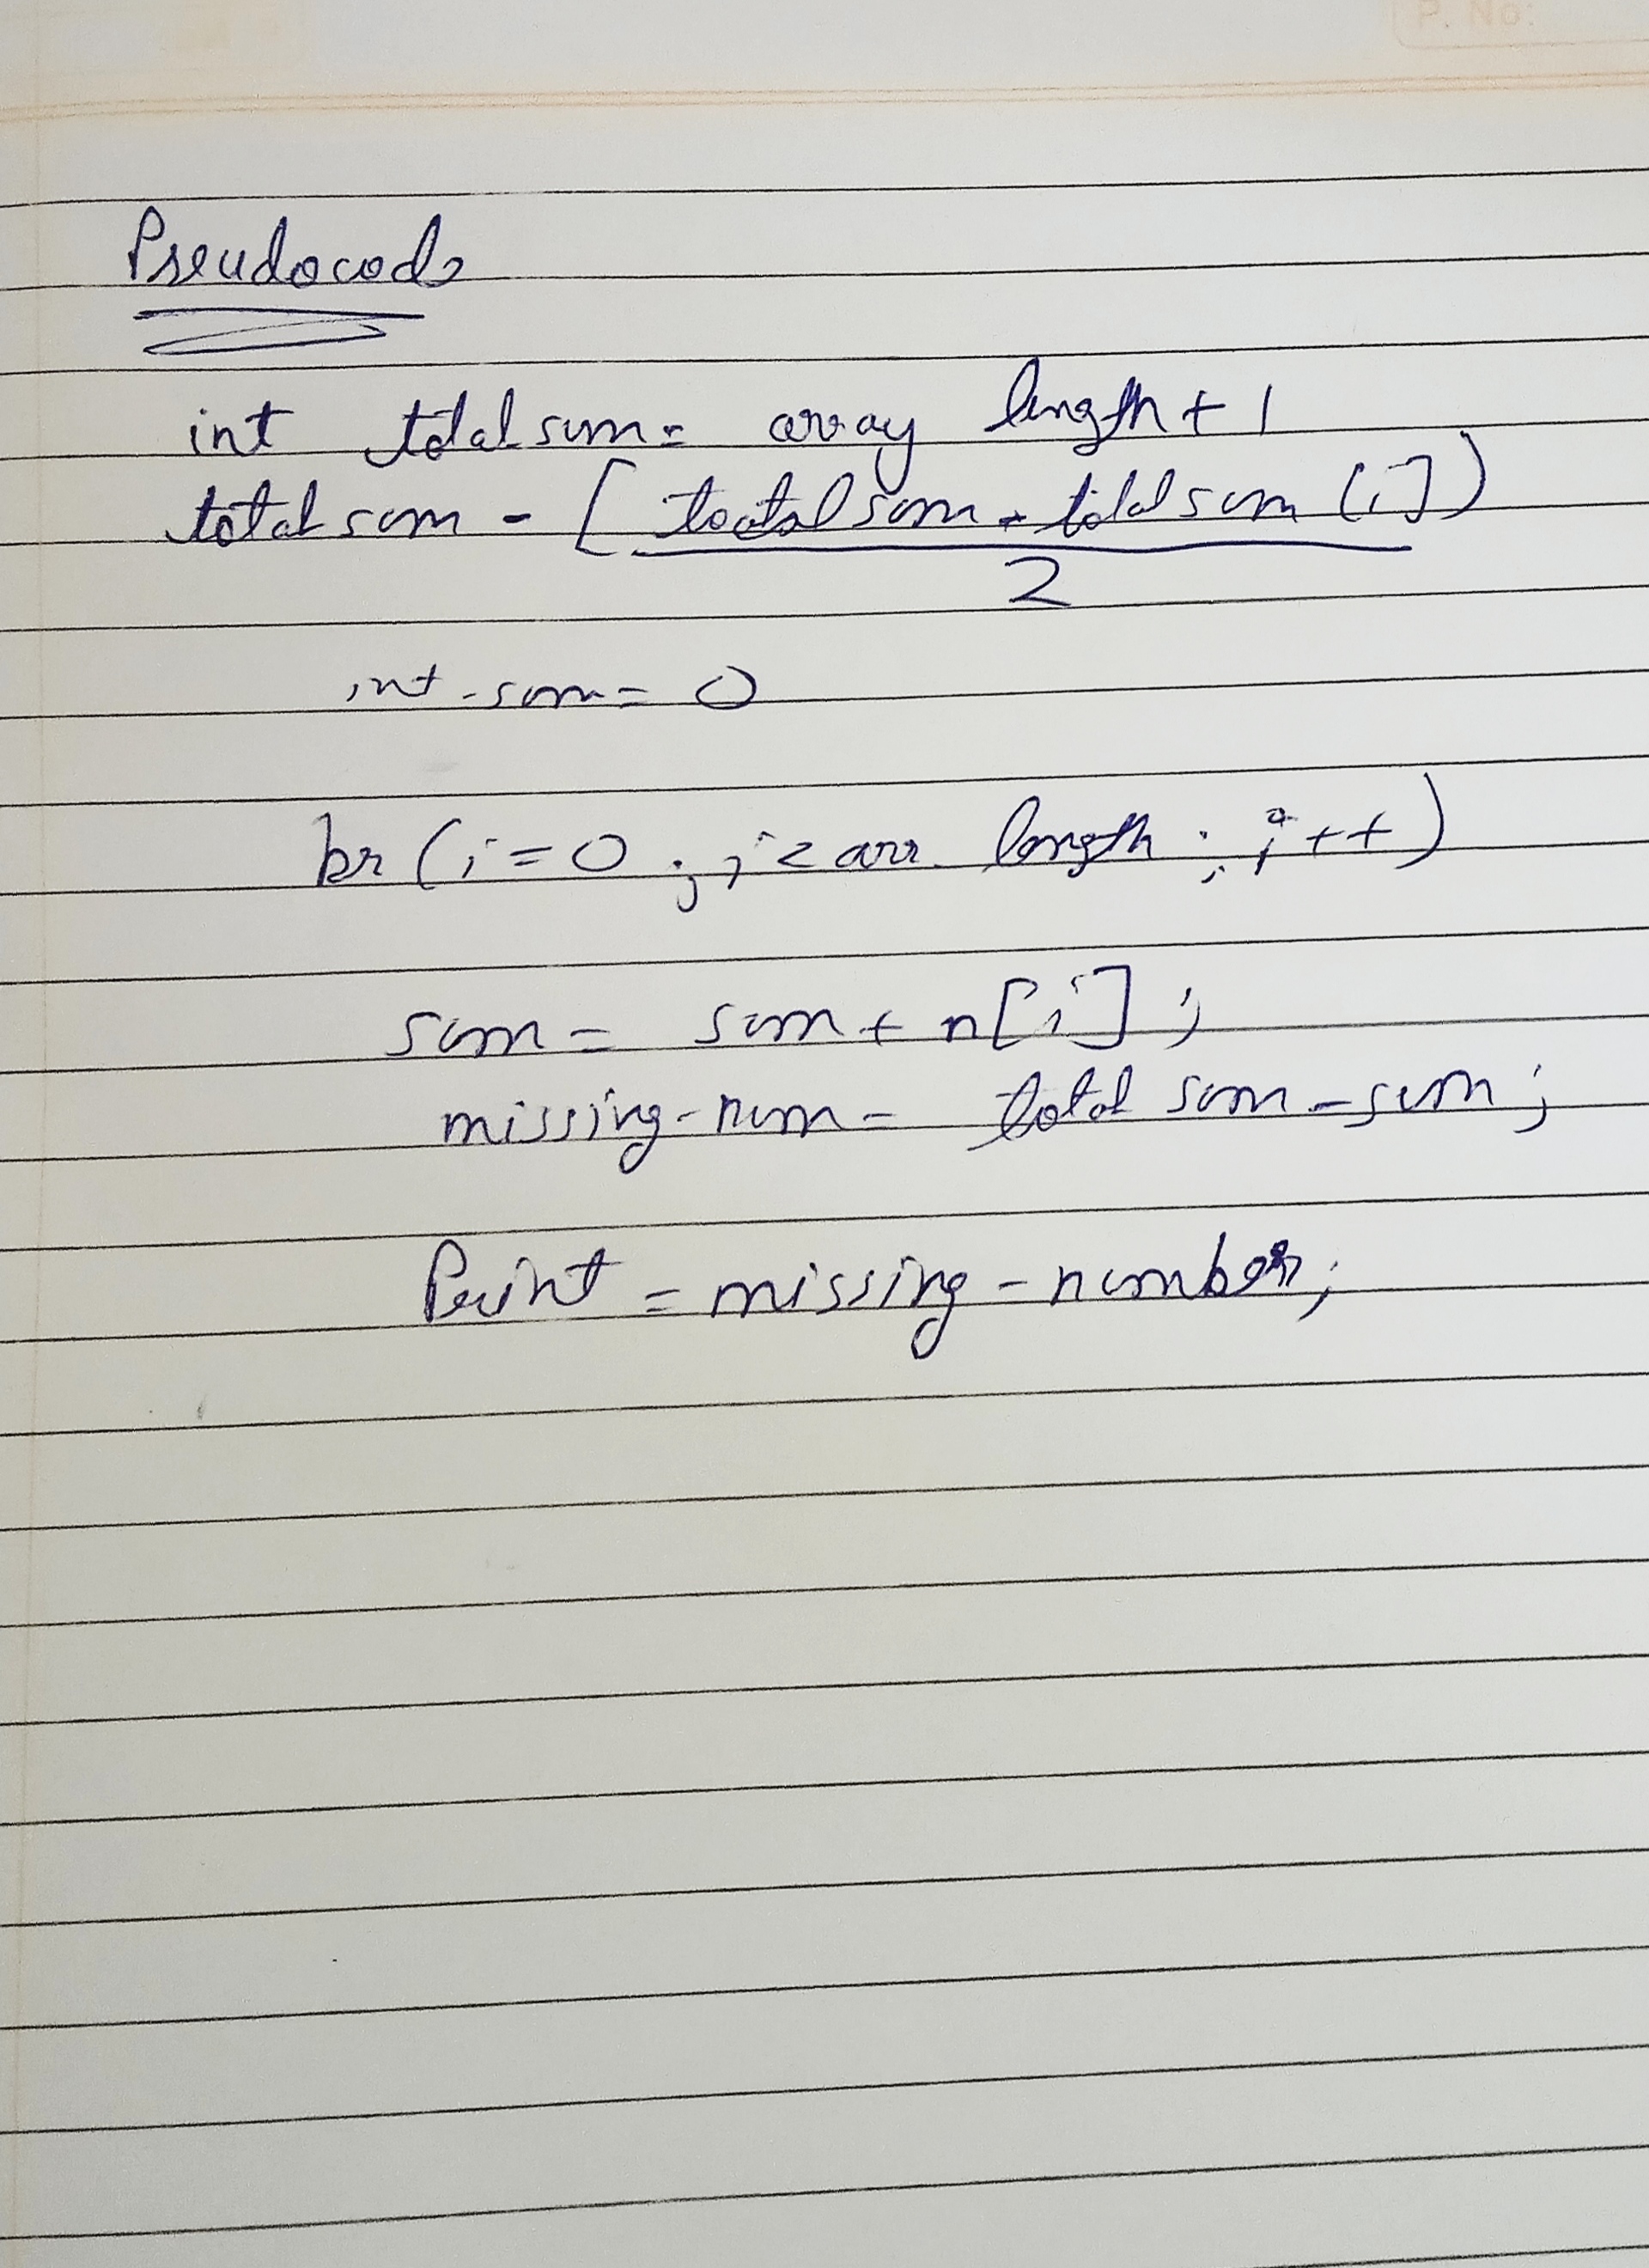 P. No:
Pseudocode
int total sum = array length + 1
total sum - [ tootal sum * total sum [i] )
2
int sum = 0
for (i = 0 ; i < arr. length ; i++)
sum = sum + n[i] ;
missing-num = total sum - sum ;
Print = missing - number ;